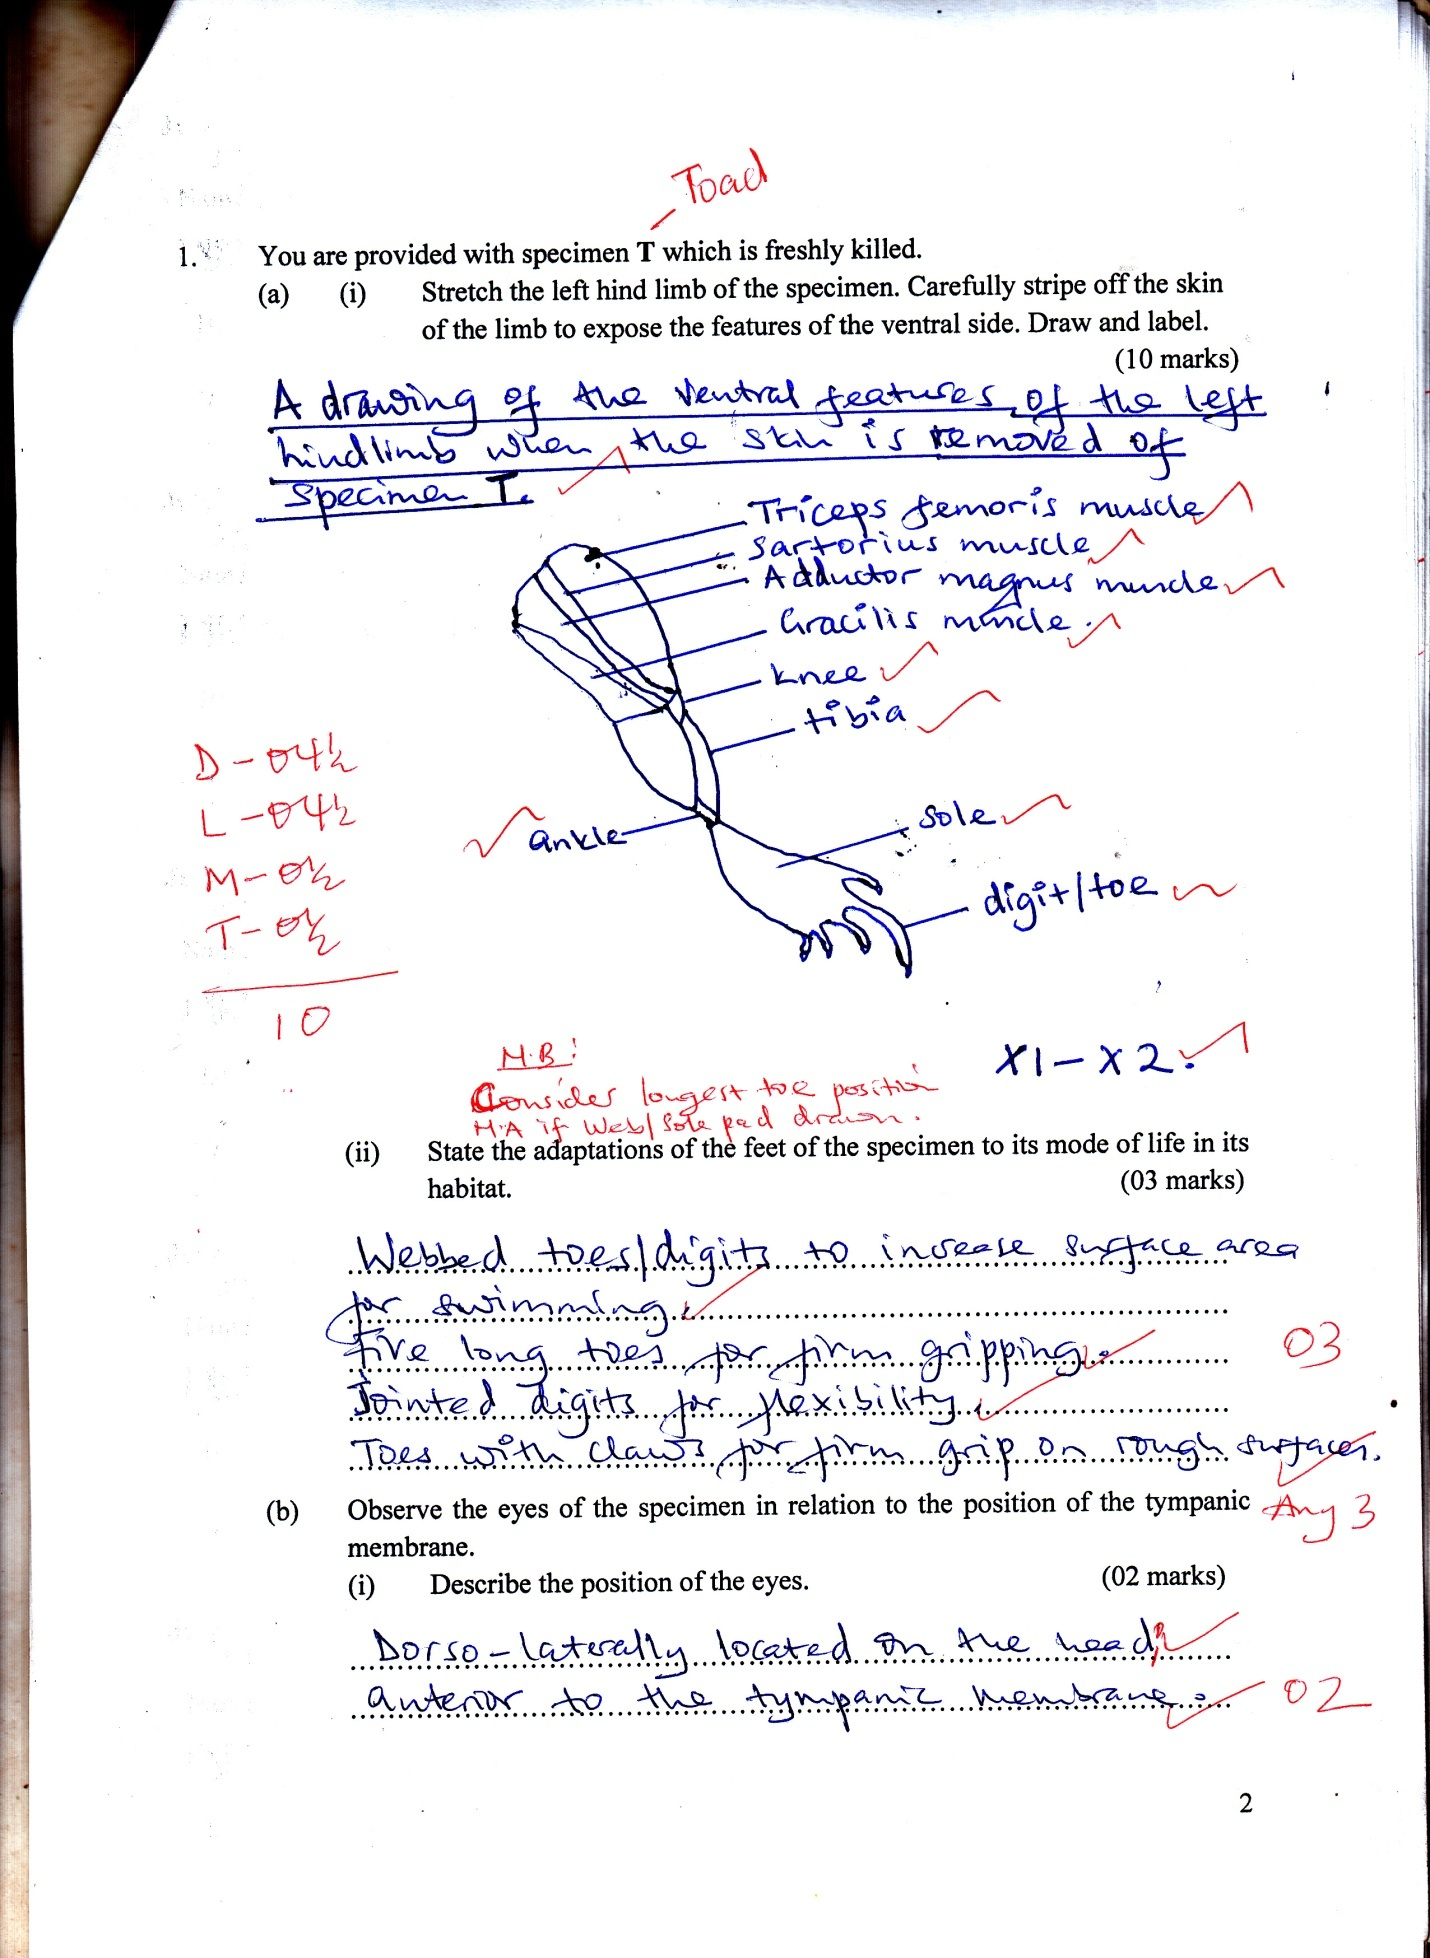 Toad
1. You are provided with specimen T which is freshly killed.
(a) (i) Stretch the left hind limb of the specimen. Carefully stripe off the skin
of the limb to expose the features of the ventral side. Draw and label.
(10 marks)
A drawing of the ventral features of the left
hindlimb when the skin is removed of
specimen T.
Triceps femoris muscle
Sartorius muscle
Adductor magnus muscle
Gracilis muscle.
knee
tibia
D - 04½
L - 04½
M - 0½
T - 0½
10
sole
ankle
digit/toe
X1 - X2.
N.B!
Consider longest toe position
N.A if Web/Sole pad drawn.
(ii) State the adaptations of the feet of the specimen to its mode of life in its
habitat. (03 marks)
Webbed toes/digits to increase surface area
for swimming.
Five long toes for firm gripping.
Jointed digits for flexibility.
Toes with claws for firm grip on rough surfaces.
03
Any 3
(b) Observe the eyes of the specimen in relation to the position of the tympanic
membrane.
(i) Describe the position of the eyes. (02 marks)
Dorso-laterally located on the head,
anterior to the tympanic membrane.
02
2